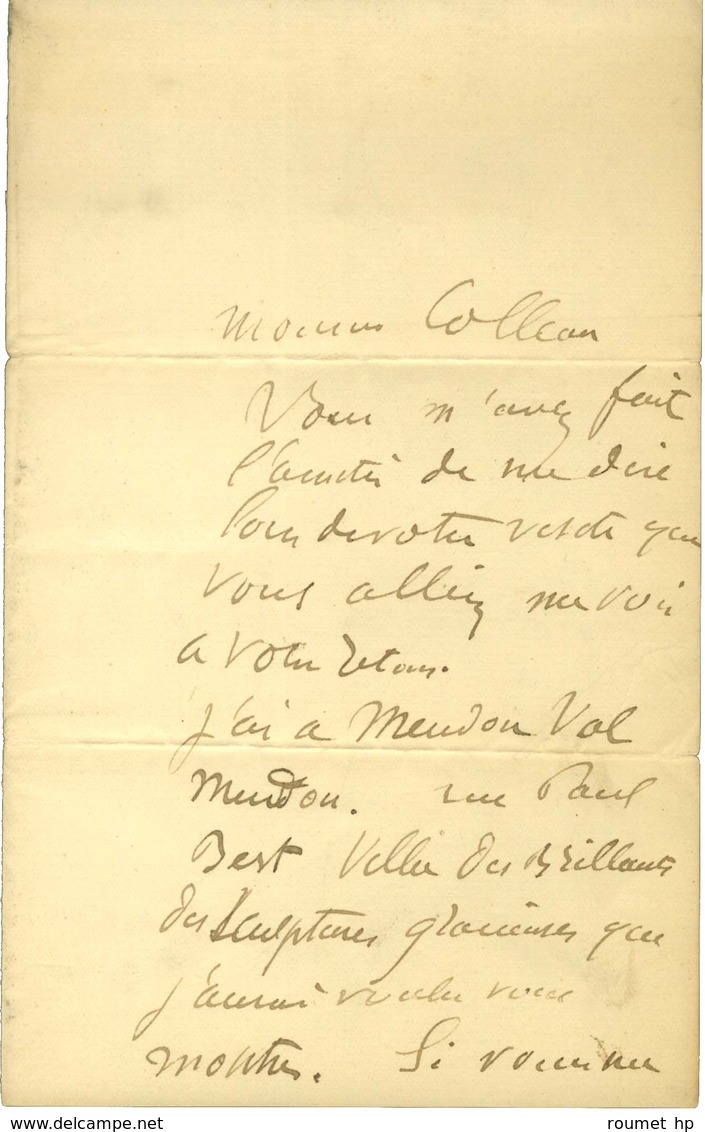 Monsieur Colleau
Vous m'avez fait
l'amitié de me dire
lors de votre visite que
vous alliez me voir
a votre retour.
j'ai a Meudon Val
Meudon. rue Paul
Bert Villa des Brillants
des sculptures que
j'aurai voulu vous
montrer. Si vous me
roumet hp